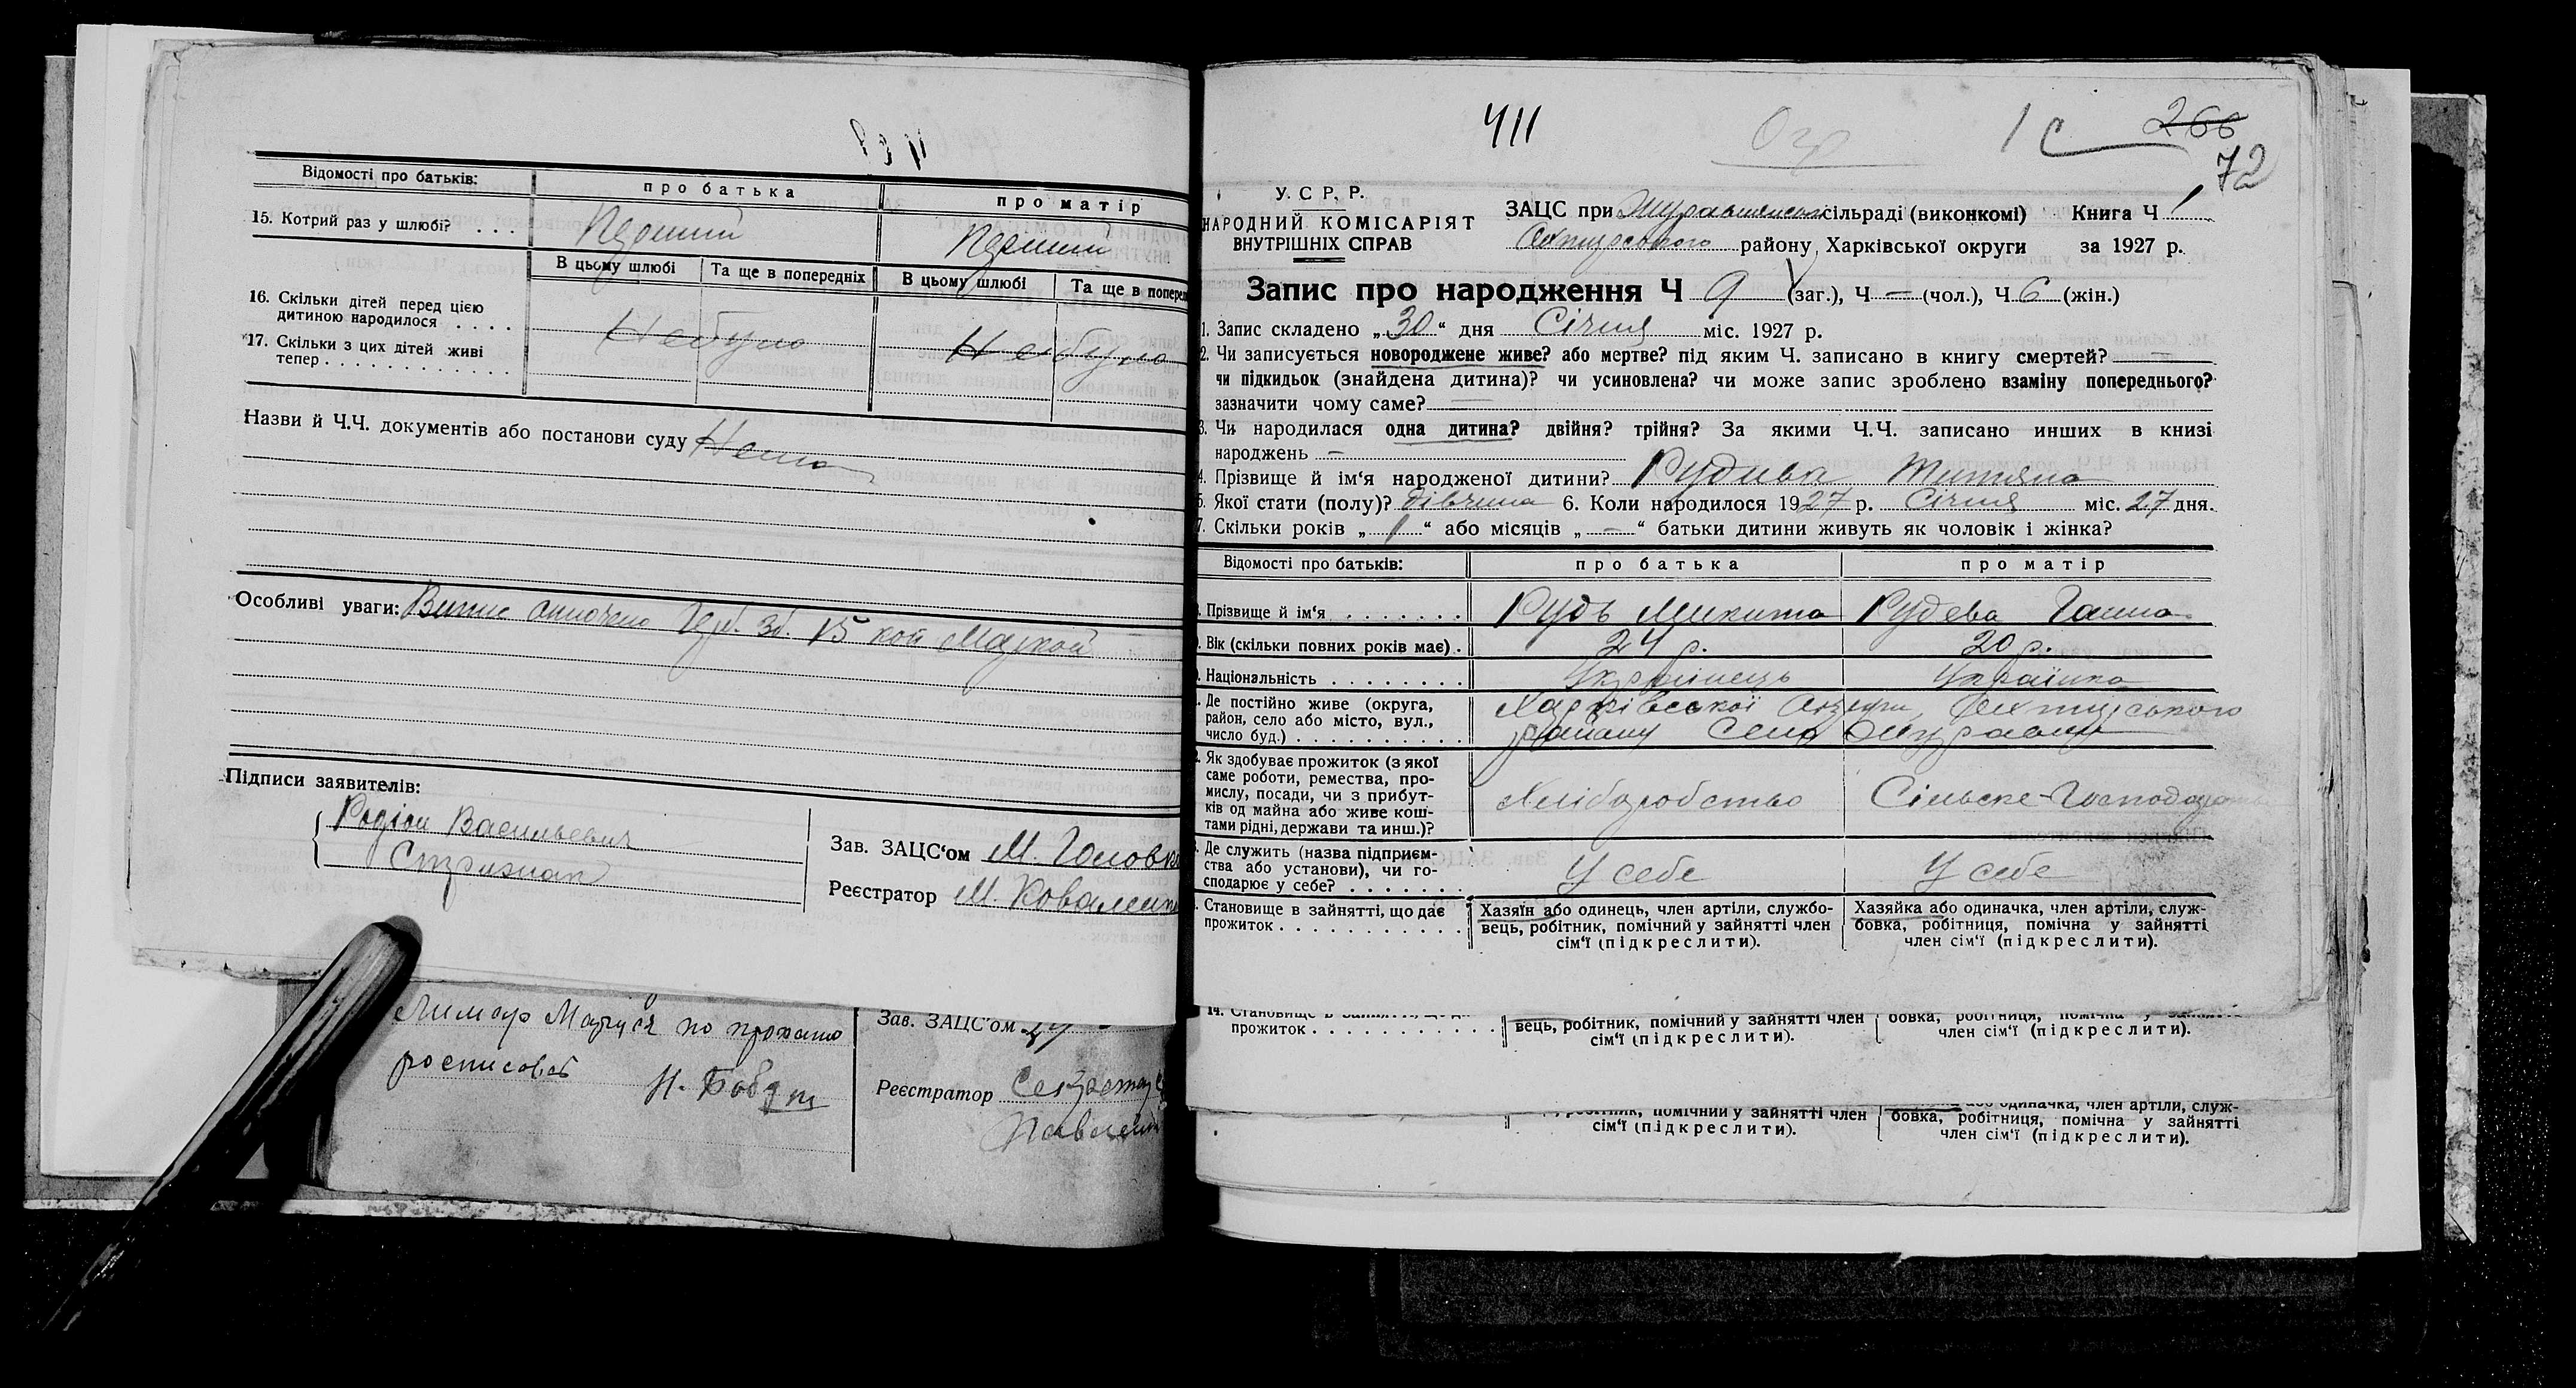 Відомості про батьків: про батька про матір
15. Котрий раз у шлюбі? . . . Перший Перший
В цьому шлюбі Та ще в попередніх В цьому шлюбі Та ще в поперед
16. Скільки дітей перед цією
дитиною народилося . . . .
Небуло Небуло
17. Скільки з цих дітей живі
тепер . . . . . . . . . . . .
Назви й Ч.Ч. документів або постанови суду Нема
Особливі уваги: Випис оплочено Герб. Зб. 15 коп маркой
Підписи заявителів:
Родіон Васильевич
Зав. ЗАЦС'ом М. Головк
Реєстратор М. Ковален
Лимар Маруся по прохані
росписовсь
Н. Бабдт
Зав. ЗАЦС'ом
Реєстратор Секретар
411
1 с 266
72
У.С.Р.Р.
НАРОДНИЙ КОМІСАРІЯТ
ВНУТРІШНІХ СПРАВ
ЗАЦС при сільраді (виконкомі) Книга Ч 1
Охтирського району, Харківської округи за 1927 р.
Запис про народження Ч 9 (заг.), Ч — (чол.), Ч 6 (жін.)
1. Запис складено „30“ дня Січня міс. 1927 р.
2. Чи записується новороджене живе? або мертве? під яким Ч. записано в книгу смертей? —
чи підкидьок (знайдена дитина)? чи усиновлена? чи може запис зроблено взаміну попереднього?
зазначити чому саме? —
3. Чи народилася одна дитина? двійня? трійня? За якими Ч.Ч. записано инших в книзі
народжень —
4. Прізвище й ім'я народженої дитини? Рудива Титяна
5. Якої стати (полу)? дівчина 6. Коли народилося 1927 р. Січня міс. 27 дня.
7. Скільки років „1“ або місяців „—“ батьки дитини живуть як чоловік і жінка?
Відомості про батьків: про батька про матір
Прізвище й ім'я . . . . . . . Рудь Микита Рудева Ганна
Вік (скільки повних років має) . 24 р. 20 р.
Національність . . . . . . . . Українець Українка
Де постійно живе (округа,
район, село або місто, вул.,
число буд.) . . . . . . . . . .
Харківської Округи Охтирського
району Село
Як здобуває прожиток (з якої
саме роботи, ремества, про-
мислу, посади, чи з прибут-
ків од майна або живе кош-
тами рідні, держави та инш.)?
Хліборобство Сільске-Господарство
Де служить (назва підприєм-
ства або установи), чи го-
сподарює у себе? . . . . . . .
У себе У себе
Становище в зайнятті, що дає
прожиток . . . . . . . . . . .
Хазяїн або одинець, член артіли, службо-
вець, робітник, помічний у зайнятті член
сім'ї (підкреслити).
Хазяйка або одиначка, член артіли, служ-
бовка, робітниця, помічна у зайнятті
член сім'ї (підкреслити).
прожиток . . . . . . . . . . .
вець, робітник, помічний у зайнятті член
сім'ї (підкреслити).
член сім'ї (підкреслити).
робітник, помічний у зайнятті член
сім'ї (підкреслити).
одиначка, член артіли, служ-
бовка, робітниця, помічна у зайнятті
член сім'ї (підкреслити).